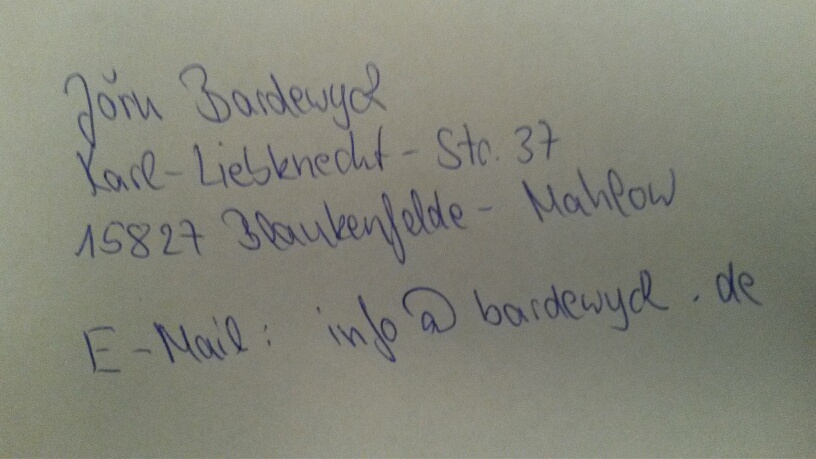 Jörn Bardewyck
Karl-Liebknecht-Str. 37
15827 Blankenfelde-Mahlow
E-Mail: info@bardewyck.de